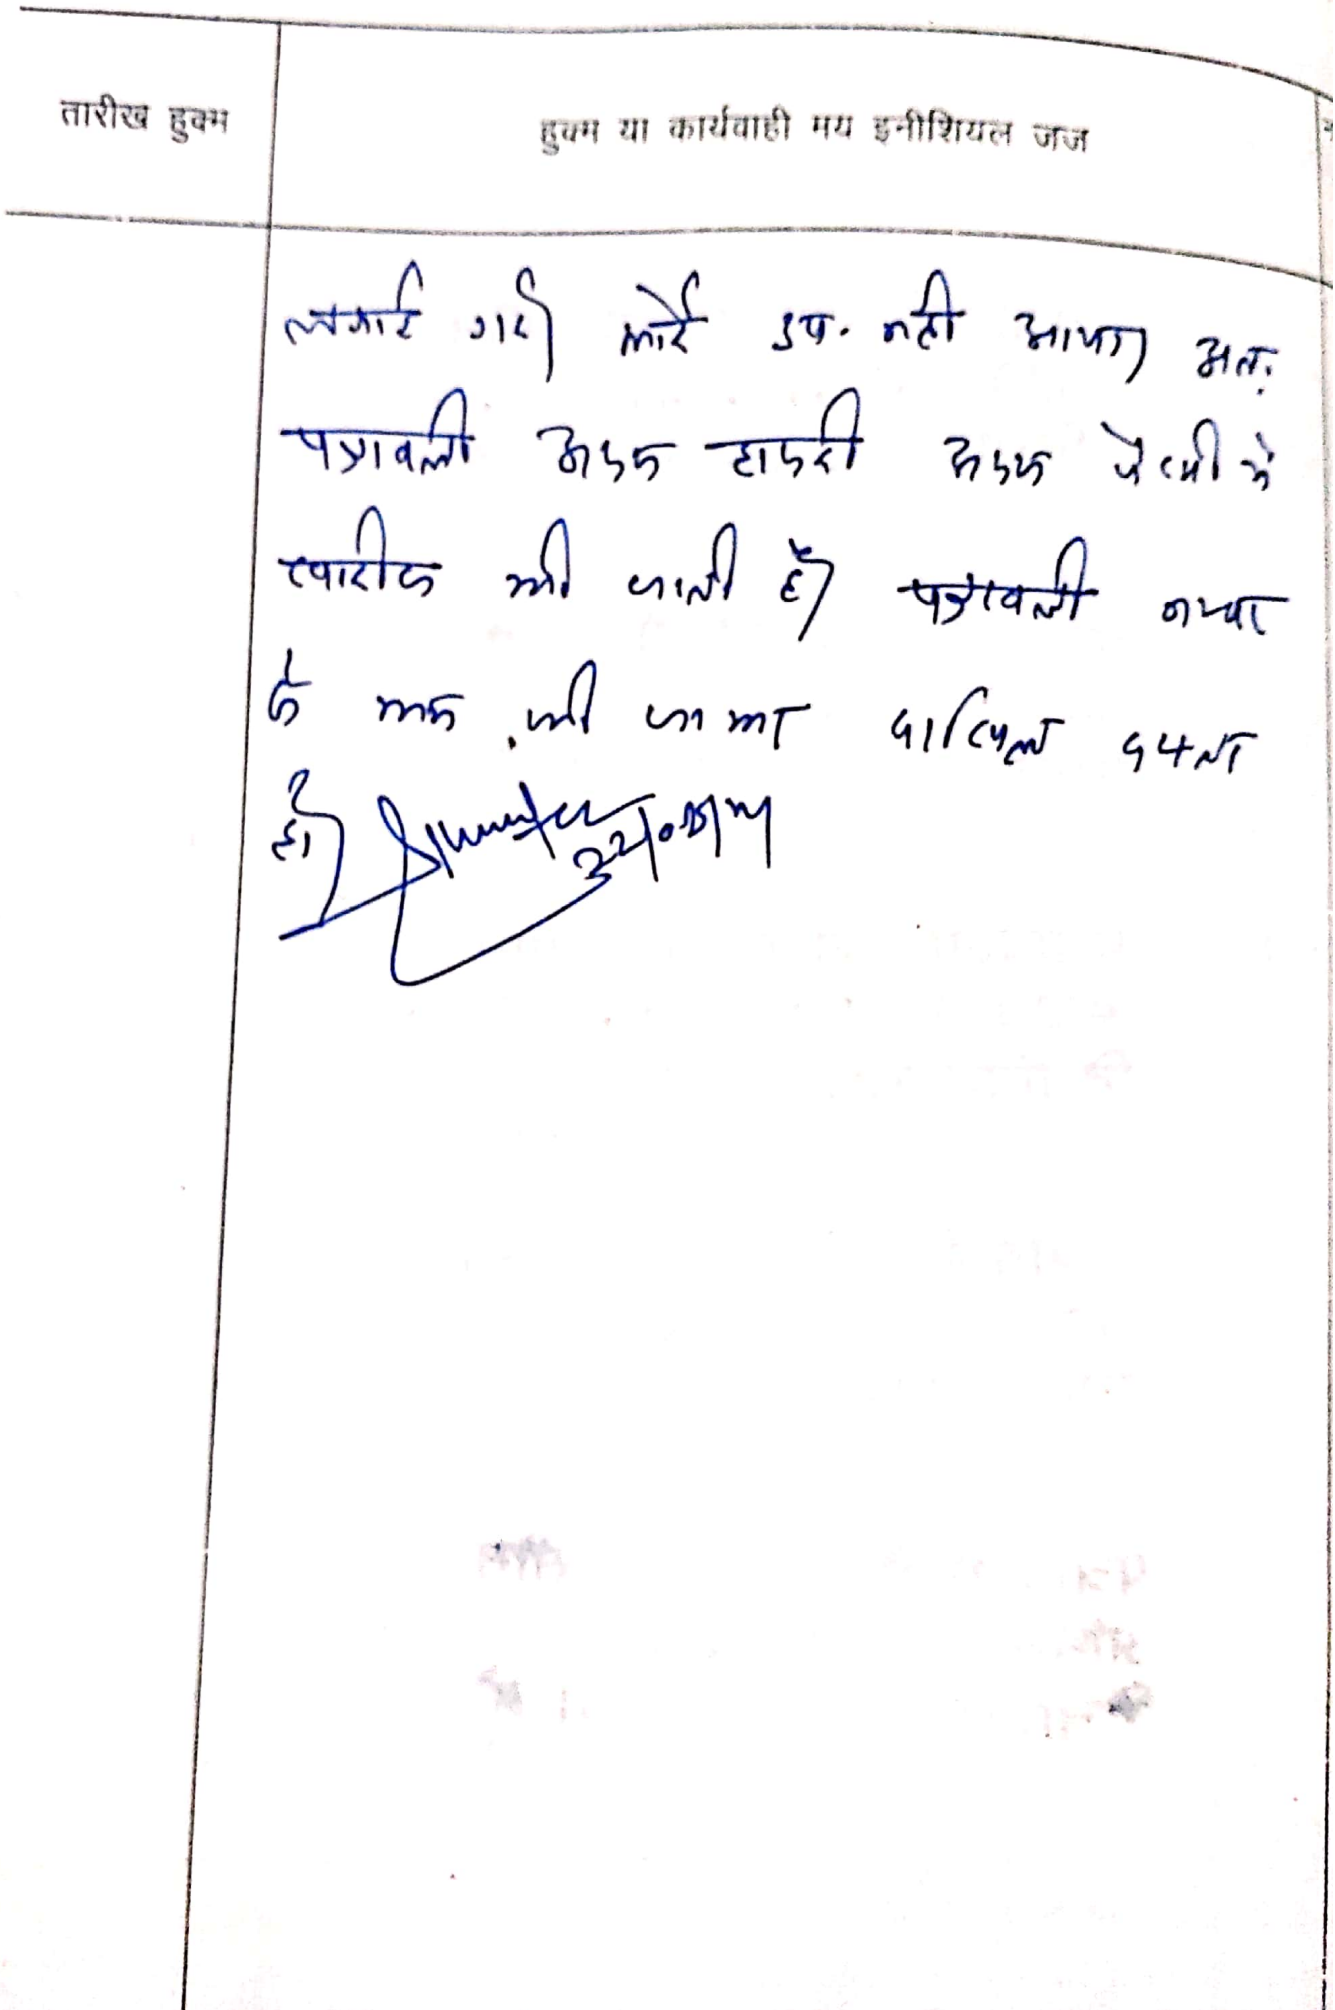 तारीख हुक्म
हुक्म या कार्यवाही मय इनीशियल जज
लगाई गई। कोई उप. नही आया। अतः
पत्रावली अदम हाजरी अदम पैरवी मे
खारीज की जाती है। पत्रावली नम्बर
से कम की जाकर दाखिल दफ्तर
हो।